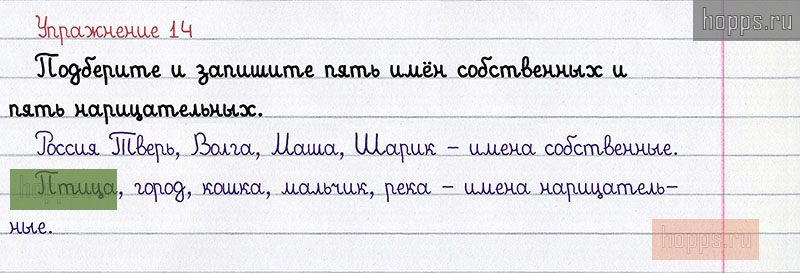 hopps.ru
Упражнение 14
Подберите и запишите пять имён собственных и
пять нарицательных.
Россия Тверь, Волга, Маша, Шарик – имена собственные.
Птица, город, кошка, мальчик, река – имена нарицатель–
ные.
hopps.ru